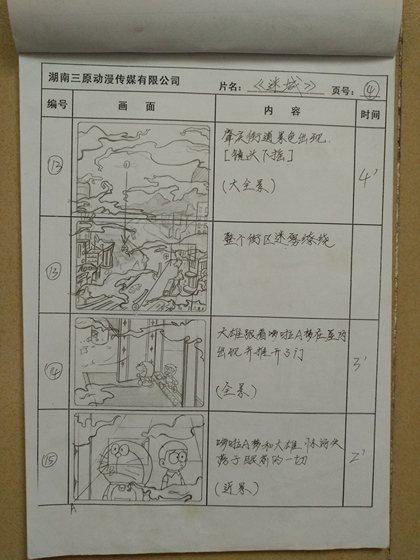 湖南三原动漫传媒有限公司 片名: 《迷城》 页号: ④
编号 画面 内容 时间
⑫ 街道景色出现.
[镜头下摇]
(大全景) 4'
⑬ 整个街区迷雾缭绕
⑭ 大雄跟着哆啦A梦在
出现并推开了门
(全景) 3'
⑮ 哆啦A梦和大雄
眼前的一切
(近景) 2'
A